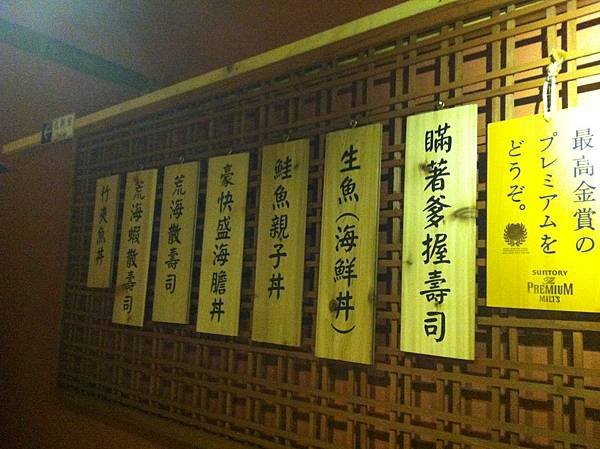 最高金賞の
プレミアムを
どうぞ。
SUNTORY
The
PREMIUM
MALT'S
瞞著爹握壽司
生魚(海鮮丼)
鮭魚親子丼
豪快盛海膽丼
荒海散壽司
荒海蝦散壽司
竹夾魚丼